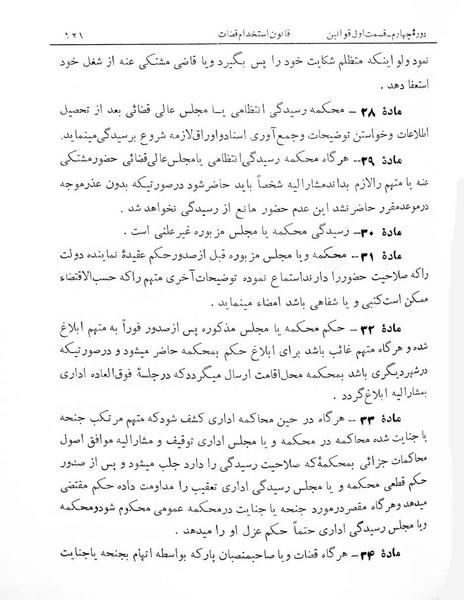 دورهٔ چهارم - قسمت اول قوانین قانون استخدام قضات ۱۲۱
نمود ولو اینکه متظلم شکایت خود را پس بگیرد ویا قاضی مشتکی عنه از شغل خود
استعفا دهد .
مادهٔ ۲۸ - محکمه رسیدگی انتظامی یا مجلس عالی قضائی بعد از تحصیل
اطلاعات وخواستن توضیحات وجمع آوری اسناد واوراق لازمه شروع برسیدگی مینماید.
مادهٔ ۲۹ - هرگاه محکمه رسیدگی انتظامی یامجلس عالی قضائی حضور مشتکی
عنه یا متهم رالازم بداند مشارالیه شخصاً باید حاضر شود درصورتیکه بدون عذر موجه
درموعد مقرر حاضر نشد این عدم حضور مانع از رسیدگی نخواهد شد .
مادهٔ ۳۰ - رسیدگی محکمه یا مجلس مزبوره غیر علنی است .
مادهٔ ۳۱ - محکمه ویا مجلس مزبوره قبل از صدور حکم عقیدهٔ نماینده دولت
راکه صلاحیت حضور را دارد استماع نموده توضیحات آخری متهم راکه حسب الاقتضاء
ممکن است کتبی و یا شفاهی باشد اصغاء مینماید .
مادهٔ ۳۲ - حکم محکمه یا مجلس مذکوره پس از صدور فوراً به متهم ابلاغ
شده و هرگاه متهم غائب باشد برای ابلاغ حکم بمحکمه حاضر میشود و درصورتیکه
درشهر دیگری باشد بمحکمه محل اقامت ارسال میگردد که درجلسهٔ فوق العاده اداری
بمشارالیه ابلاغ گردد .
مادهٔ ۳۳ - هرگاه در حین محاکمه اداری کشف شود که متهم مرتکب جنحه
یا جنایت شده محاکمه در محکمه و یا مجلس اداری توقیف و مشارالیه موافق اصول
محاکمات جزائی بمحکمهٔ که صلاحیت رسیدگی را دارد جلب میشود و پس از صدور
حکم قطعی محکمه و یا مجلس اداری تعقیب را مداومت داده حکم مقتضی
میدهد وهرگاه مقصر درمورد جنحه یا جنایت درمحکمه عمومی محکوم شود محکمه
ویا مجلس رسیدگی اداری حتماً حکم عزل او را میدهد .
مادهٔ ۳۴ - هرگاه قضات ویا صاحبمنصبان پارکه بواسطه اتهام بجنحه یاجنایت